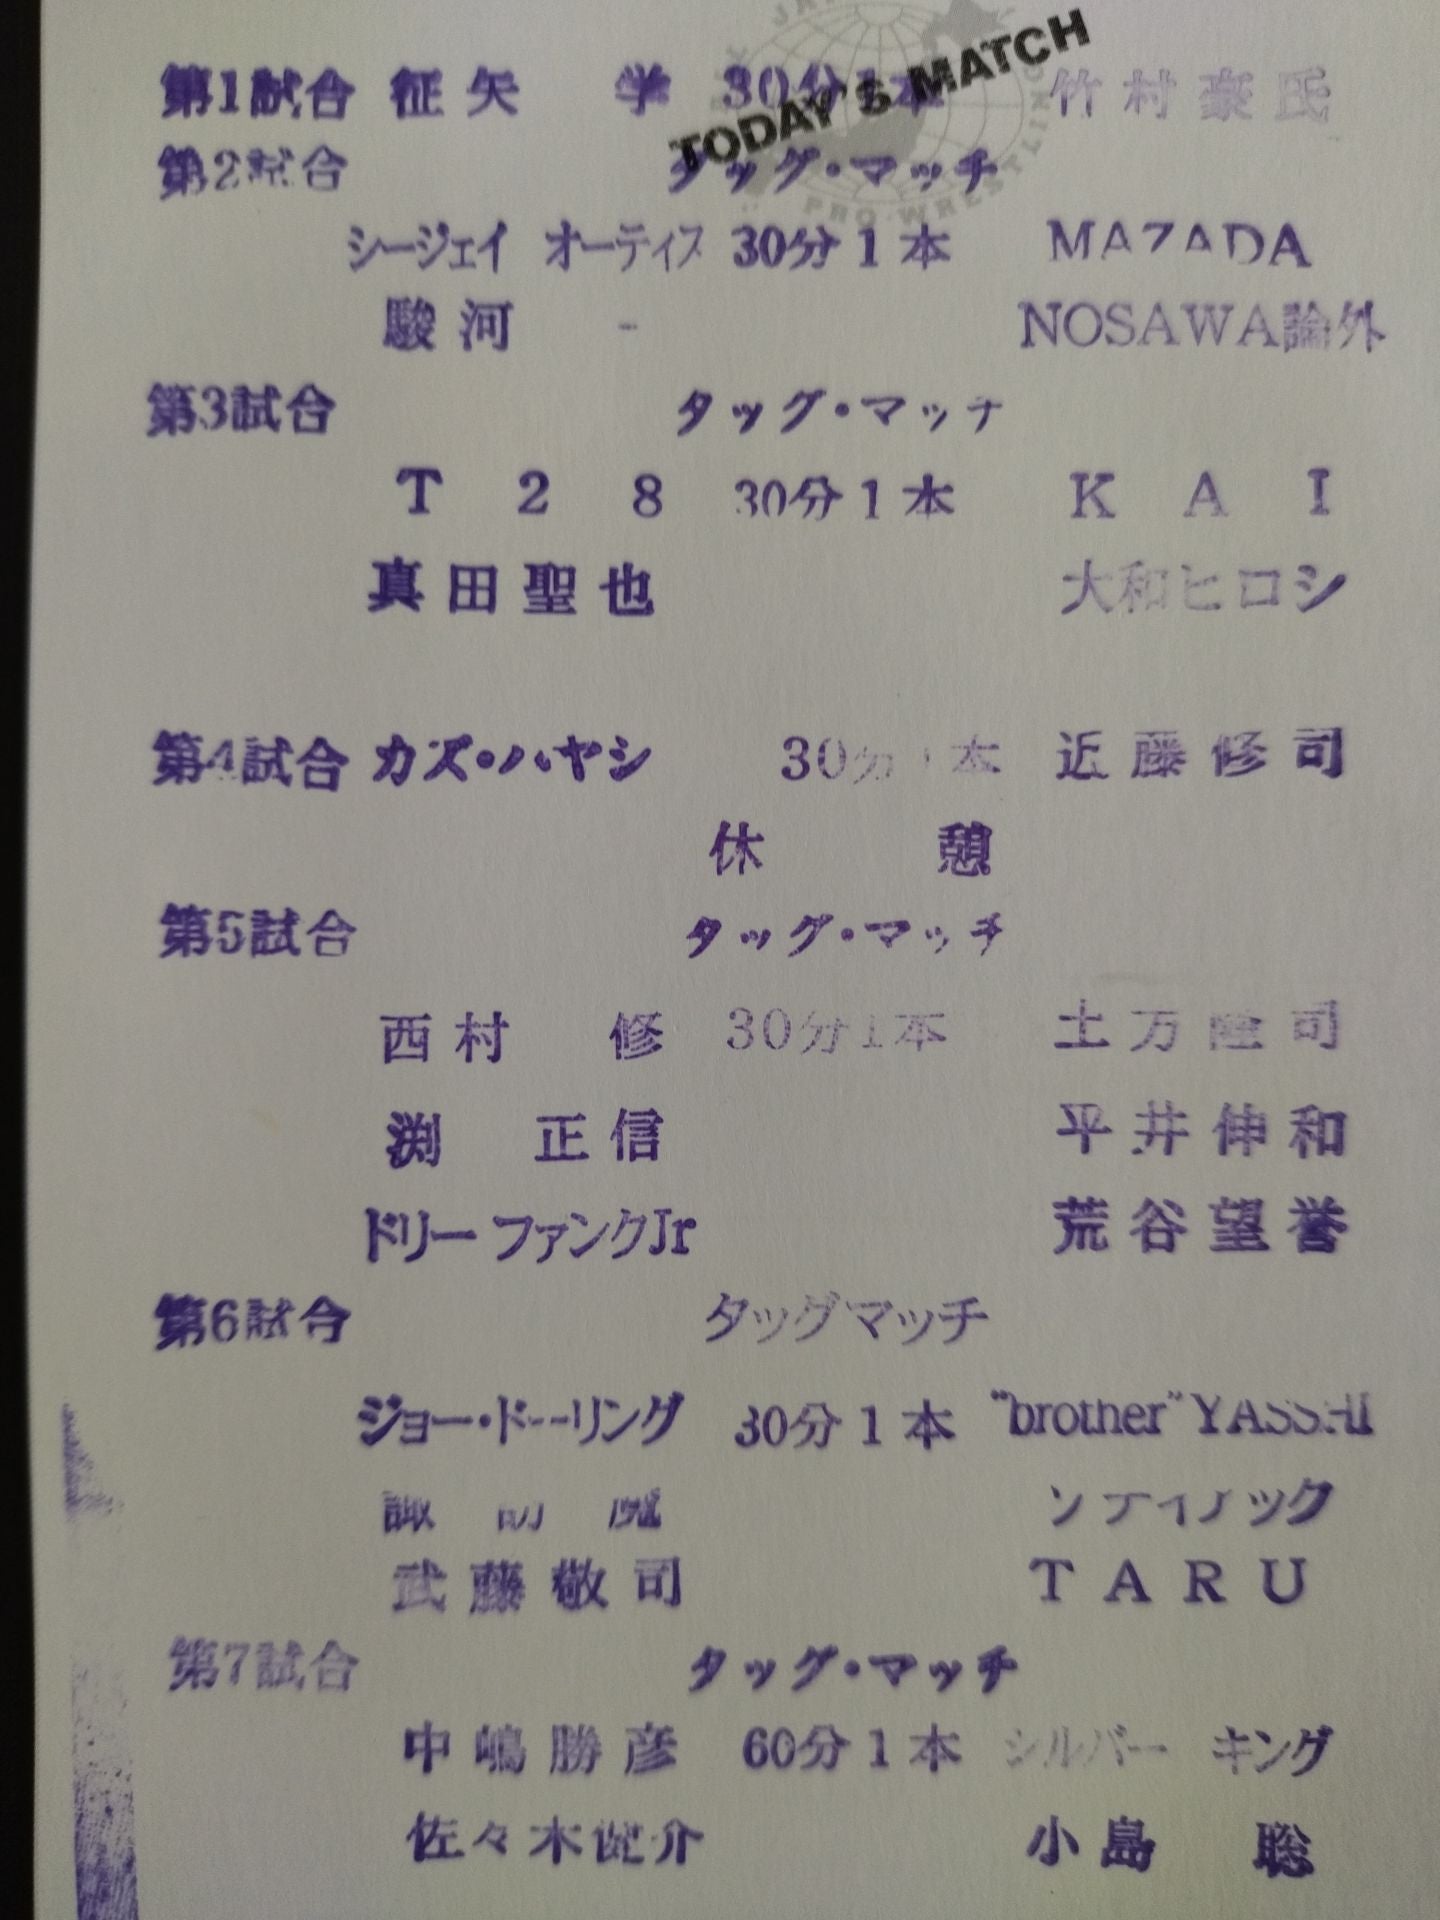 TODAY'S MATCH
PRO-WRESTLING
第1試合 征矢 学 30分1本 竹村豪氏
第2試合 タッグ・マッチ
シージェイ オーティス 30分1本 MAZADA
駿河 - NOSAWA論外
第3試合 タッグ・マッチ
T28 30分1本 KAI
真田聖也 大和ヒロシ
第4試合 カズ・ハヤシ 30分1本 近藤修司
休憩
第5試合 タッグ・マッチ
西村 修 30分1本 土方隆司
渕 正信 平井伸和
ドリーファンクJr 荒谷望誉
第6試合 タッグマッチ
ジョー・ドーリング 30分1本 "brother"YASSHI
諏訪魔 ゾディアック
武藤敬司 TARU
第7試合 タッグ・マッチ
中嶋勝彦 60分1本 シルバー キング
佐々木健介 小島 聡